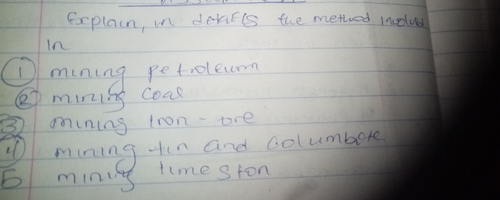 Explain, in details the method involved
in
1 mining petroleum
2 mining coal
3 mining iron-ore
4 mining tin and columbite
5 mining limeston